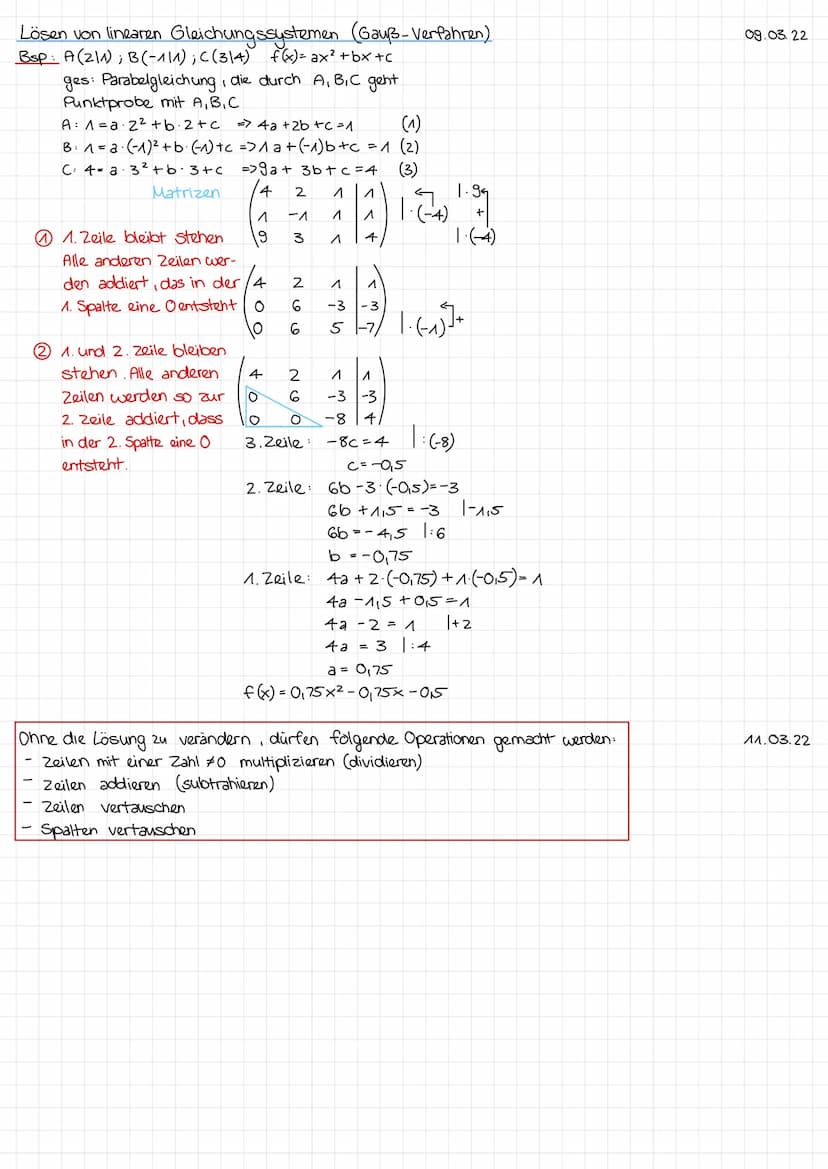 Lösen von linearen Gleichungssystemen (Gauß-Verfahren) 09.03.22
Bsp: A(2|1); B(-1|1); C(3|4) f(x)= ax²+bx+c
ges: Parabelgleichung, die durch A,B,C geht
Punktprobe mit A,B,C
A: 1=a·2²+b·2+c => 4a+2b+c=1 (1)
B: 1=a·(-1)²+b·(-1)+c =>1a+(-1)b+c =1 (2)
C: 4=a·3²+b·3+c =>9a+3b+c=4 (3)
Matrizen
4 2 1 | 1 |·9
1 -1 1 | 1 |·(-4) +
9 3 1 | 4 |·(-4)
① 1. Zeile bleibt stehen
Alle anderen Zeilen wer-
den addiert, das in der
1. Spalte eine 0 entsteht
4 2 1 | 1
0 6 -3 | -3
0 6 5 | -7 |·(-1) +
② 1. und 2. Zeile bleiben
stehen. Alle anderen
Zeilen werden so zur
2. Zeile addiert, dass
in der 2. Spalte eine 0
entsteht.
4 2 1 | 1
0 6 -3 | -3
0 0 -8 | 4
3. Zeile: -8c=4 |:(-8)
c=-0,5
2. Zeile: 6b-3·(-0,5)=-3
6b+1,5=-3 |-1,5
6b=-4,5 |:6
b=-0,75
1. Zeile: 4a+2·(-0,75)+1·(-0,5)=1
4a-1,5+0,5=1
4a-2=1 |+2
4a=3 |:4
a=0,75
f(x)=0,75x²-0,75x-0,5
Ohne die Lösung zu verändern, dürfen folgende Operationen gemacht werden: 11.03.22
- Zeilen mit einer Zahl ≠0 multiplizieren (dividieren)
- Zeilen addieren (subtrahieren)
- Zeilen vertauschen
- Spalten vertauschen